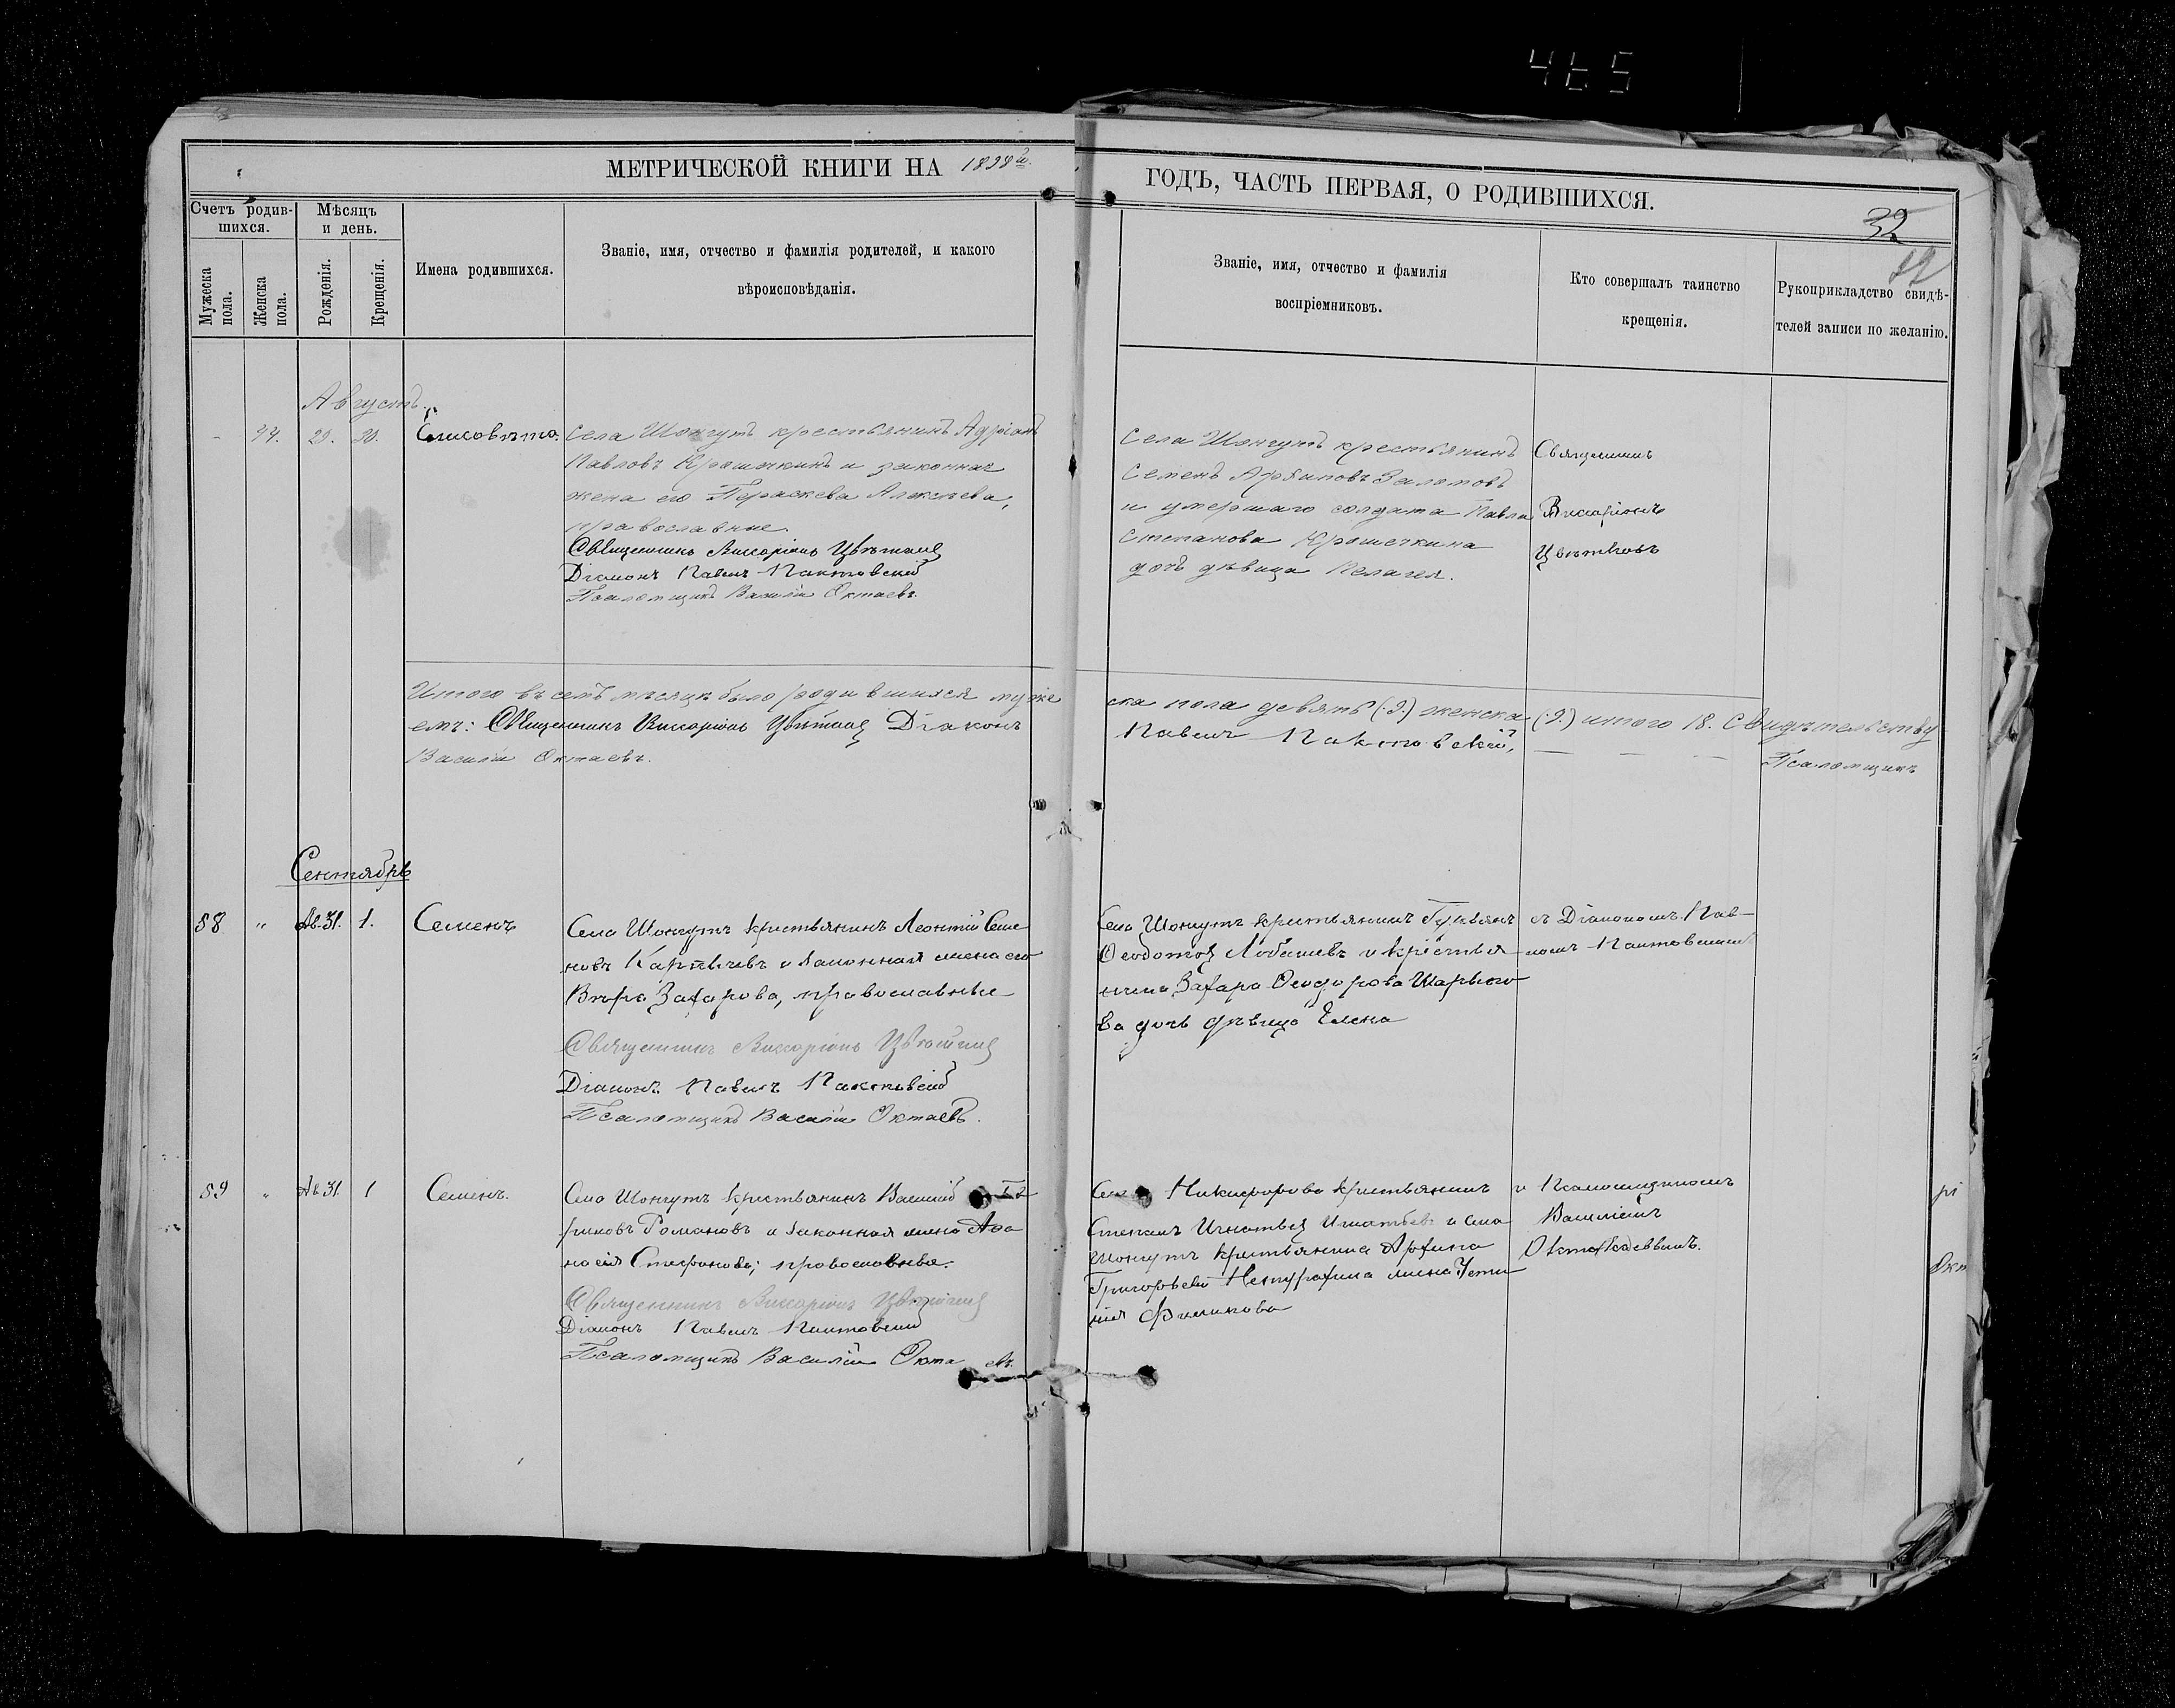 465
МЕТРИЧЕСКОЙ КНИГИ НА 1898 й.
ГОДЪ, ЧАСТЬ ПЕРВАЯ, О РОДИВШИХСЯ.
32
Счетъ родив-
шихся.
Мужеска
пола.
Женска
пола.
Мѣсяцъ
и день.
Рожденія.
Крещенія.
Имена родившихся.
Званіе, имя, отчество и фамилія родителей, и какого
вѣроисповѣданія.
Званіе, имя, отчество и фамилія
воспріемниковъ.
Кто совершалъ таинство
крещенія.
Рукоприкладство свидѣ-
телей записи по желанію.
Августъ.
44. 29. 30. Елисовѣта.
Села Шонгутъ крестьянинъ Адріанъ
Павловъ Крошечкинъ и законная
жена его Параскева Алексѣева,
православные.
Священникъ Виссаріонъ Цвѣтковъ
Діаконъ Павелъ Пактовскій
Псаломщикъ Василій Октаевъ.
Села Шонгутъ крестьянинъ
Семенъ Архиповъ Заломовъ
и умершаго солдата Павла
Степанова Крошечкина
дочь дѣвица Пелагея.
Священникъ
Виссаріонъ
Цвѣтковъ
Итого въ семъ мѣсяцѣ было родившихся муже
ска пола девять (9.) женска (9.) итого 18. Свидѣтельству
емъ: Священникъ Виссаріонъ Цвѣтковъ Діаконъ
Павелъ Пактовскій, Псаломщикъ
Василій Октаевъ.
Сентябрь
58 " Ав.31. 1. Семенъ
Села Шонгутъ крестьянинъ Леонтій Семе
новъ Карпычевъ и законная жена его
Вѣра Захарова, православные
Священникъ Виссаріонъ Цвѣтковъ
Діаконъ Павелъ Пактовскій
Псаломщикъ Василій Октаевъ.
Села Шонгутъ крестьянинъ Гурьянъ
Ѳеодотовъ Лобашевъ и крестья
нина Захара Ѳеодорова
ва дочь дѣвица Елена
съ Діакономъ Пав-
ломъ Пактовскимъ
59 " Ав.31. 1 Семенъ.
Села Шонгутъ крестьянинъ Василій
Романовъ и законная жена Аѳа
насія Стефанова; православные.
Священникъ Виссаріонъ Цвѣтковъ
Діаконъ Павелъ Пактовскій
Псаломщикъ Василій Окта евъ.
Села Никифорова крестьянинъ
Степанъ Игнатьевъ Игнатьевъ и села
Шонгутъ крестьянина
Григорьева жена
нія Филипова
и Псаломщикомъ
Василіемъ
Октаевымъ.